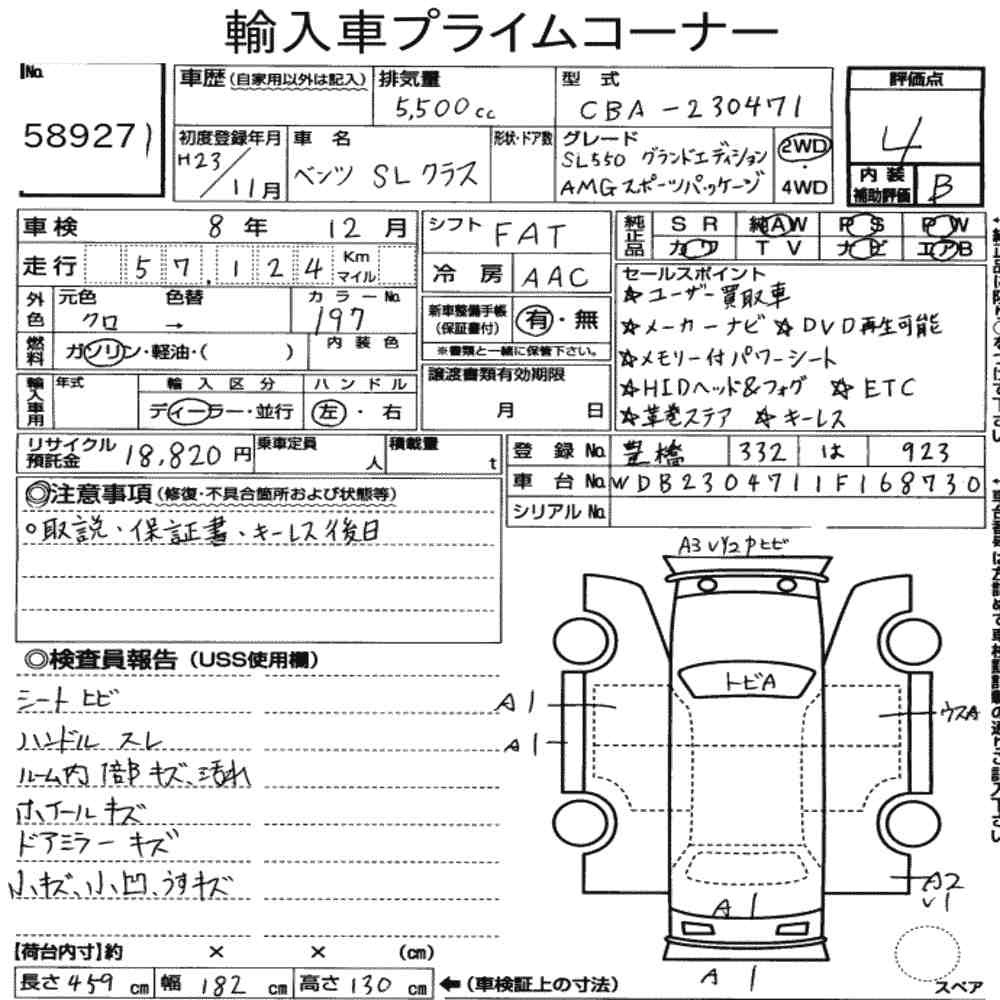 輸入車プライムコーナー
No.
58927
車歴(自家用以外は記入) 排気量 型式
5,500cc CBA-230471
評価点
4
初度登録年月 車名 形状・ドア数 グレード
H23/11月 ベンツ SLクラス SL550 グランドエディション 2WD
・
AMGスポーツパッケージ 4WD
内装
補助評価 B
車検 8年 12月 シフト FAT
純正品 SR 純AW PS PW
カワ TV ナビ エアB
走行 57,124 Km マイル 冷房 AAC
外色 元色 色替 カラーNo.
クロ → 197
新車整備手帳
(保証書付) 有・無
※書類と一緒に保管下さい。
燃料 ガソリン・軽油・( ) 内装色
輸入車用 年式 輸入区分 ハンドル
ディーラー・並行 左・右
譲渡書類有効期限
月 日
セールスポイント
☆ユーザー買取車
☆メーカーナビ ☆DVD再生可能
☆メモリー付パワーシート
☆HIDヘッド&フォグ ☆ETC
☆革巻ステア ☆キーレス
リサイクル
預託金 18,820円 乗車定員 人 積載量 t
登録No. 豊橋 332 は 923
車台No. WDB2304711F168730
シリアルNo.
◎注意事項(修復・不具合箇所および状態等)
○取説・保証書・キーレス後日
◎検査員報告(USS使用欄)
シートヒビ
ハンドル スレ
ルーム内 1部キズ、汚れ
ホイールキズ
ドアミラーキズ
小キズ、小凹、うすキズ
A3 V1/2 Pヒビ
トビA
A1
A1
ウスA
A2
V1
A1
A1
スペア
【荷台内寸】約 × × (cm)
長さ 459cm 幅 182cm 高さ 130cm ←(車検証上の寸法)